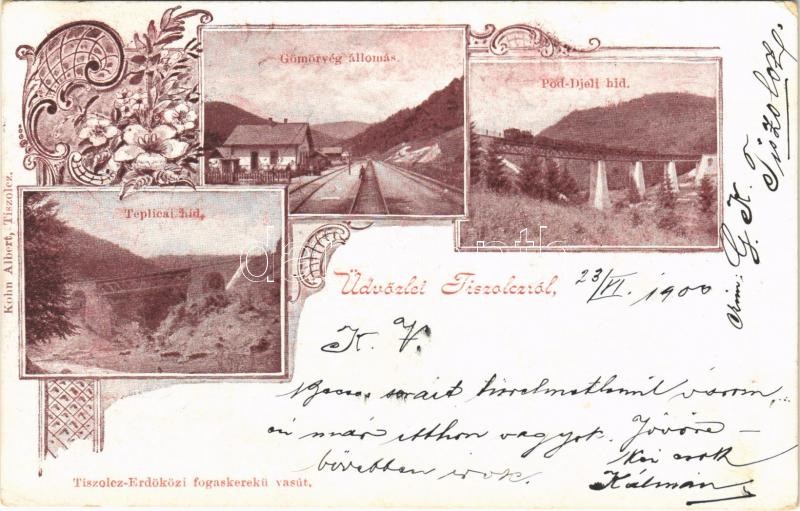 Gömörvég állomás.
Pod-Djeli híd.
Teplicai híd.
Kohn Albert, Tiszolcz.
Üdvözlet Tiszolczról,
23/VI. 1900
G. K. T.
Tiszolcz.
K. V.
Becses sorait türelmetlenül várom,
én már itthon vagyok. Jövőre
bővebben írok.
Kálmán
Tiszolcz-Erdőközi fogaskerekű vasút.